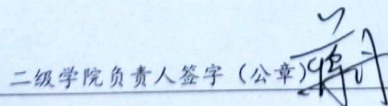 二级学院负责人签字（公章）